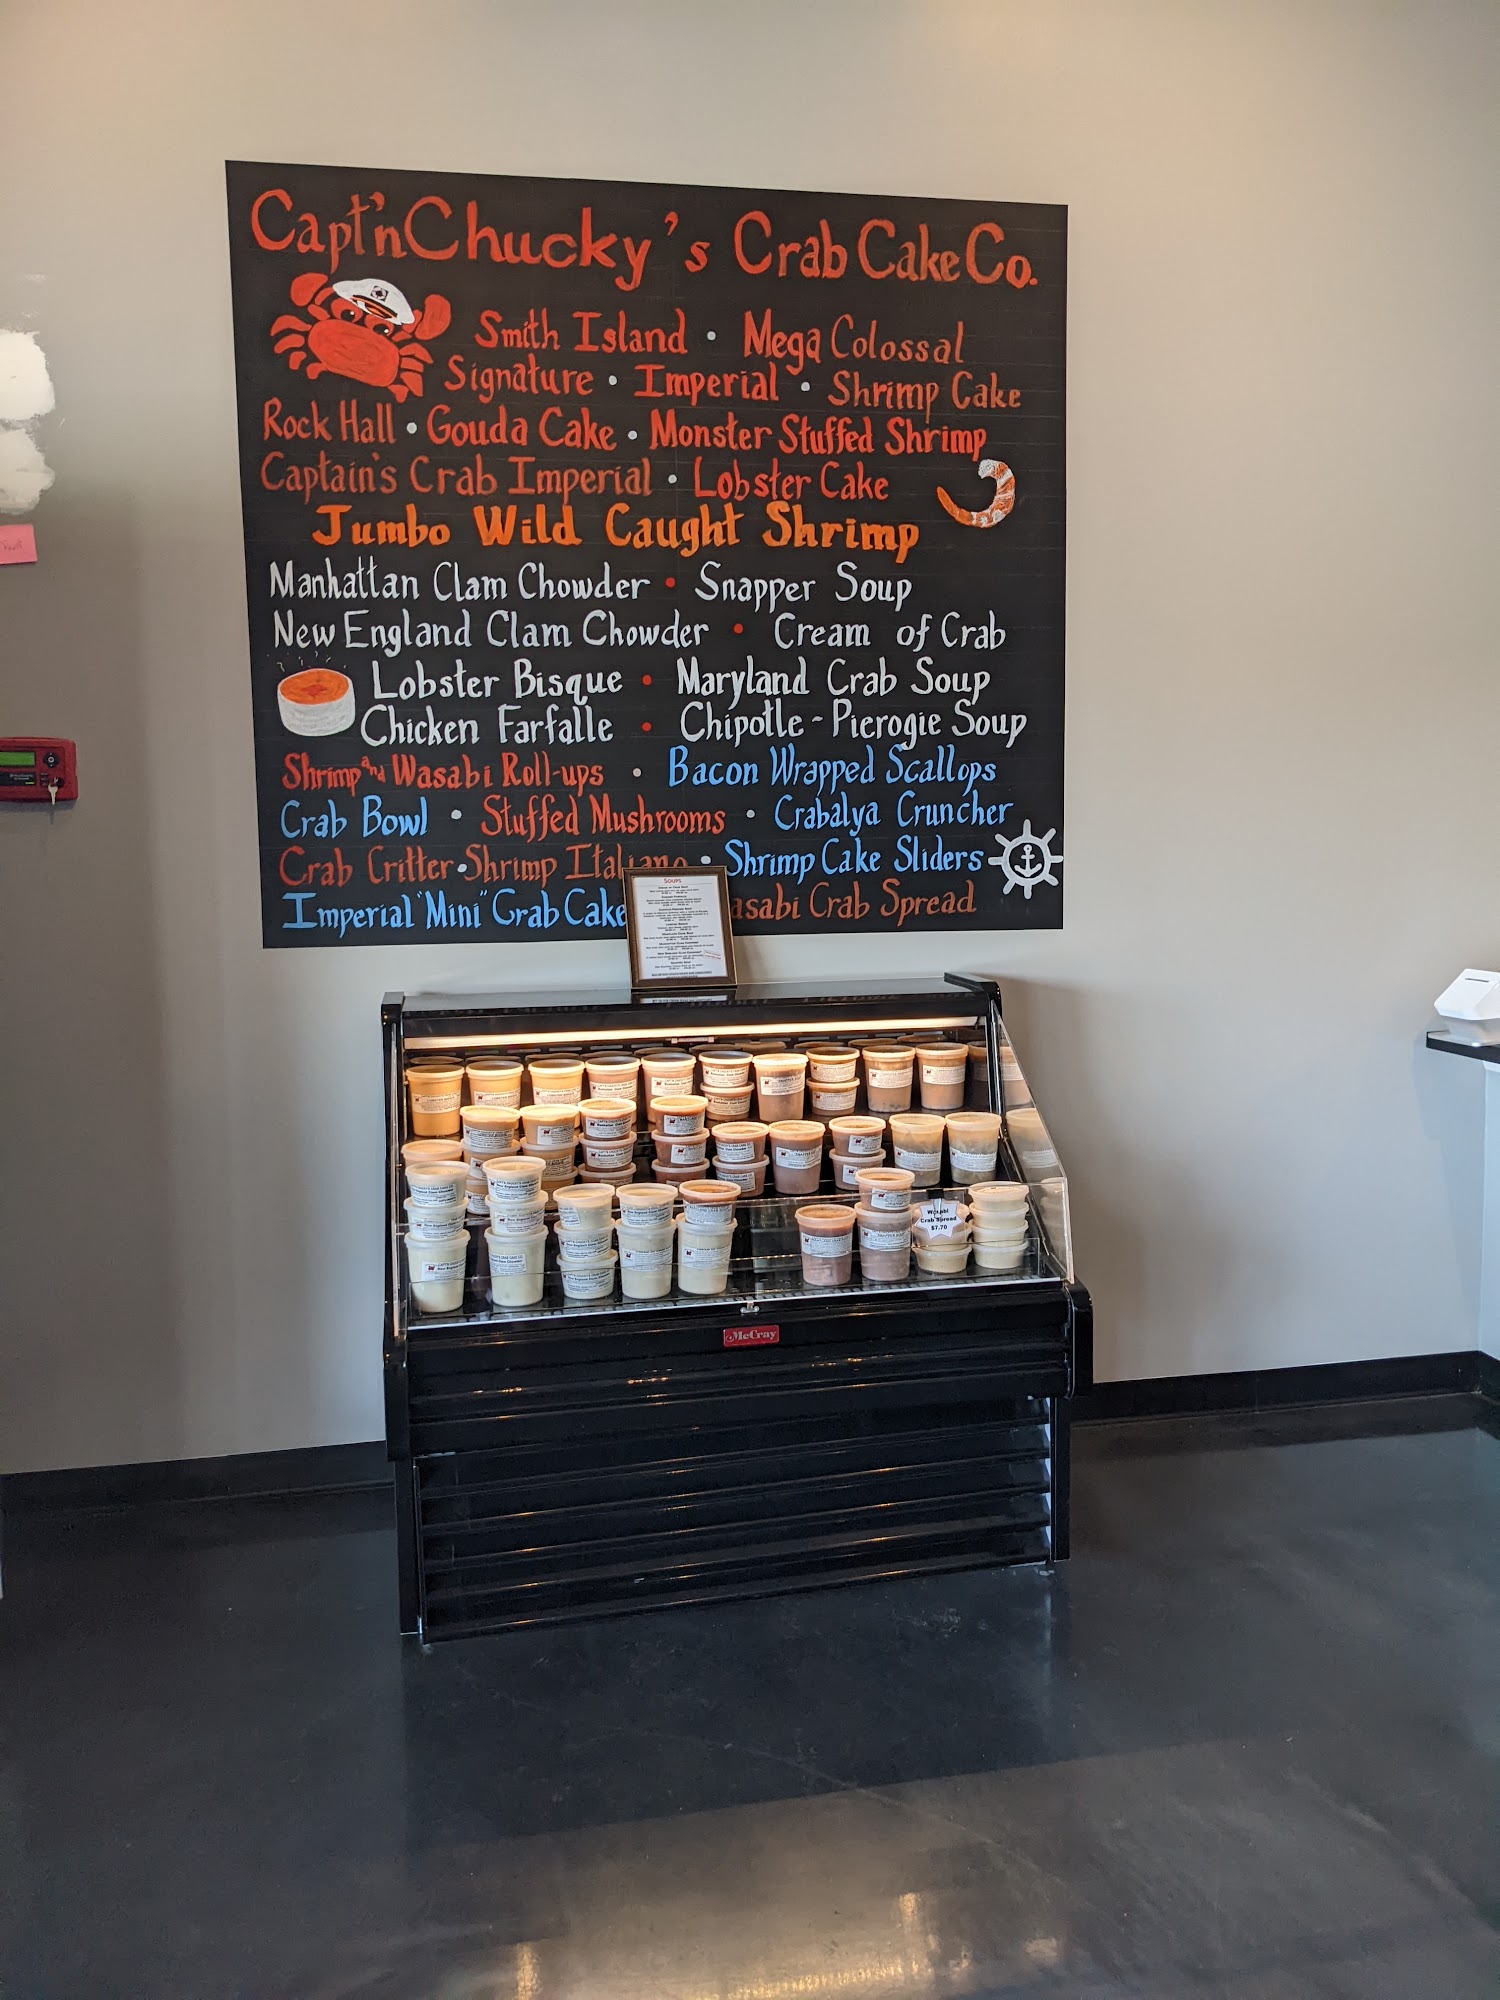 Capt'n Chucky's Crab Cake Co.
Smith Island • Mega Colossal
Signature • Imperial • Shrimp Cake
Rock Hall • Gouda Cake • Monster Stuffed Shrimp
Captain's Crab Imperial • Lobster Cake
Jumbo Wild Caught Shrimp
Manhattan Clam Chowder • Snapper Soup
New England Clam Chowder • Cream of Crab
Lobster Bisque • Maryland Crab Soup
Chicken Farfalle • Chipotle - Pierogie Soup
Shrimp and Wasabi Roll-ups • Bacon Wrapped Scallops
Crab Bowl • Stuffed Mushrooms • Crabalya Cruncher
Crab Critter • Shrimp Italiano • Shrimp Cake Sliders
Imperial "Mini" Crab Cake asabi Crab Spread
Soups
Wasabi
Crab Spread
$7.70
McCray